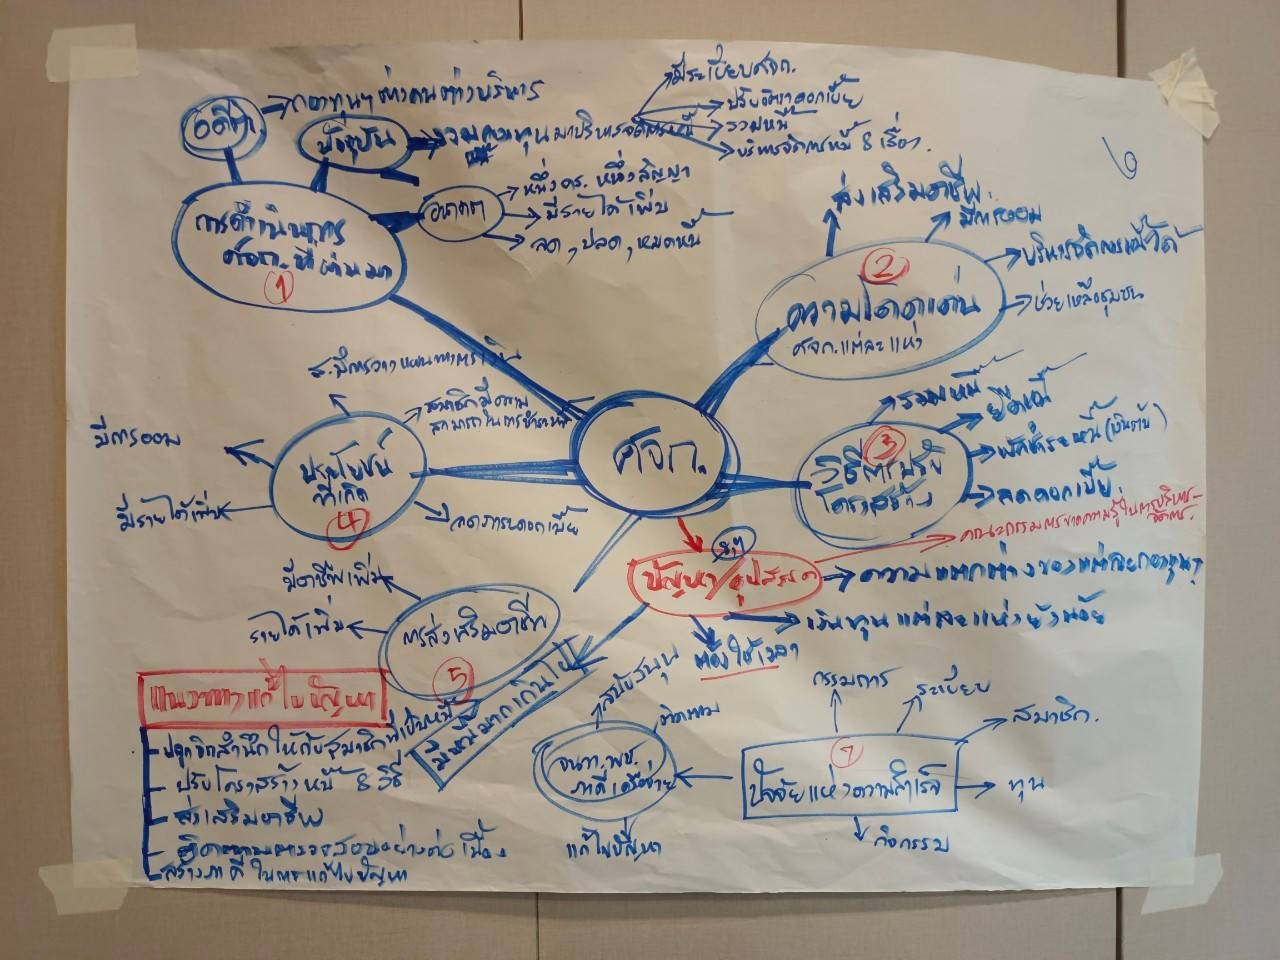 อดีต
กองทุนฯ ต่างคนต่างบริหาร
ปัจจุบัน
รวมกองทุนมาบริหารจัดการหนี้
มีระเบียบศจก.
ปรับอัตราดอกเบี้ย
รวมหนี้
บริหารจัดการหนี้ 8 เรื่อง.
อนาคต
หนึ่งคร. หนึ่งสัญญา
มีรายได้เพิ่ม
ลด, ปลด, หมดหนี้
การดำเนินการ
ศจก. ที่ผ่านมา
1
6
ส่งเสริมอาชีพ.
มีการออม
บริหารจัดการหนี้ได้
ช่วยเหลือชุมชน
2
ความโดดเด่น
ศจก. แต่ละแห่ง
ศจก.
รวมหนี้
ยืดหนี้
พักชำระหนี้
ลดดอกเบี้ย.
3
วิธีการปรับ
โครงสร้าง
ส. มีการวางแผนทางการเงิน
สมาชิกมีความ
สามารถในการชำระหนี้
มีการออม
มีรายได้เพิ่ม
ลดภาระดอกเบี้ย
ประโยชน์
ที่เกิด
4
ปัญหา/อุปสรรค
คณะกรรมการขาดความรู้ในการบริหาร
จัดการ.
ความแตกต่างของแต่ละกองทุนฯ
เงินทุนแต่ละแห่งยังน้อย
ต้องใช้เวลา
มีหนี้มากเกินไป
มีอาชีพเพิ่ม
รายได้เพิ่ม
การส่งเสริมอาชีพ
5
แนวทางแก้ไขปัญหา
- ปลูกจิตสำนึกให้กับสมาชิกที่เป็นหนี้
- ปรับโครงสร้างหนี้ 8 วิธี
- ส่งเสริมอาชีพ
- ติดตามตรวจสอบอย่างต่อเนื่อง
- สร้างภาคีในการแก้ไขปัญหา
สนับสนุน
ติดตาม
จนท. พช.
ภาคีเครือข่าย
แก้ไขปัญหา
กรรมการ
ระเบียบ
สมาชิก.
ทุน
กิจกรรม
7
ปัจจัยแห่งความสำเร็จ